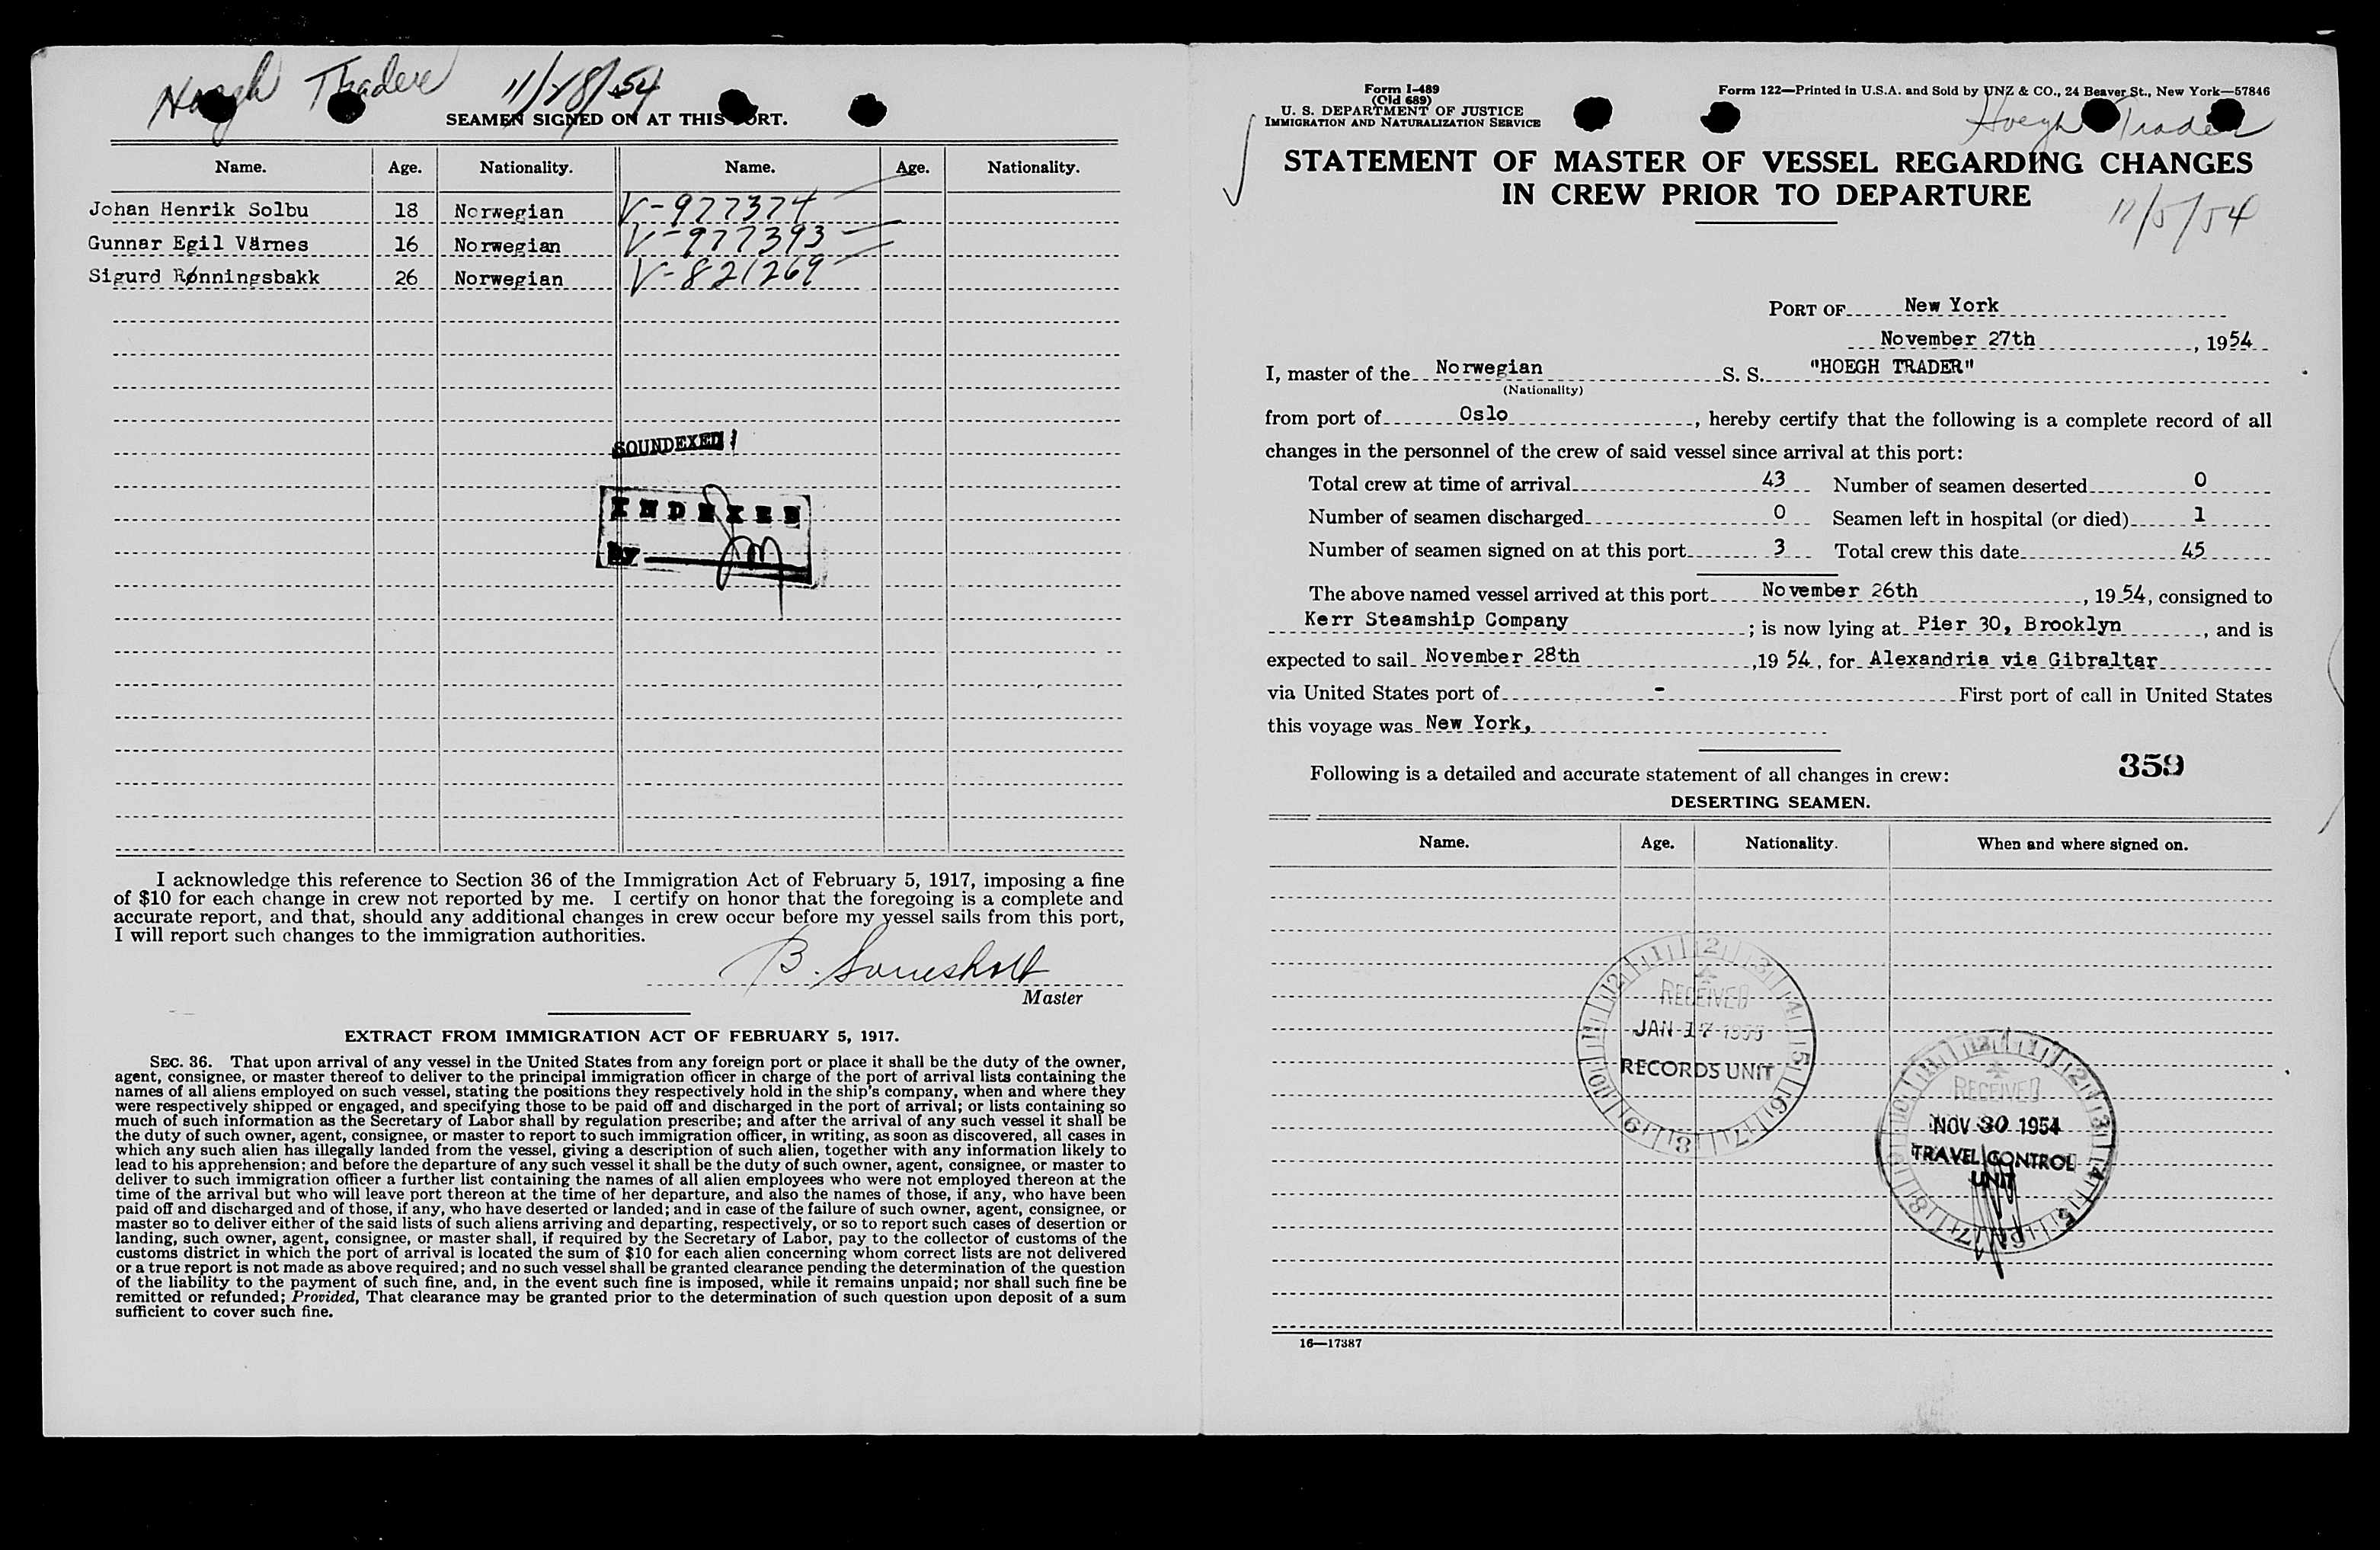 Hoegh Trader 11/28/54
SEAMEN SIGNED ON AT THIS PORT.
Name. Age. Nationality. Name. Age. Nationality.
Johan Henrik Solbu 18 Norwegian V-977374
Gunnar Egil Värnes 16 Norwegian V-977393
Sigurd Rønningsbakk 26 Norwegian V-821269
SOUNDEXED
INDEXED
By
I acknowledge this reference to Section 36 of the Immigration Act of February 5, 1917, imposing a fine
of $10 for each change in crew not reported by me. I certify on honor that the foregoing is a complete and
accurate report, and that, should any additional changes in crew occur before my vessel sails from this port,
I will report such changes to the immigration authorities.
B.
Master
EXTRACT FROM IMMIGRATION ACT OF FEBRUARY 5, 1917.
SEC. 36. That upon arrival of any vessel in the United States from any foreign port or place it shall be the duty of the owner,
agent, consignee, or master thereof to deliver to the principal immigration officer in charge of the port of arrival lists containing the
names of all aliens employed on such vessel, stating the positions they respectively hold in the ship's company, when and where they
were respectively shipped or engaged, and specifying those to be paid off and discharged in the port of arrival; or lists containing so
much of such information as the Secretary of Labor shall by regulation prescribe; and after the arrival of any such vessel it shall be
the duty of such owner, agent, consignee, or master to report to such immigration officer, in writing, as soon as discovered, all cases in
which any such alien has illegally landed from the vessel, giving a description of such alien, together with any information likely to
lead to his apprehension; and before the departure of any such vessel it shall be the duty of such owner, agent, consignee, or master to
deliver to such immigration officer a further list containing the names of all alien employees who were not employed thereon at the
time of the arrival but who will leave port thereon at the time of her departure, and also the names of those, if any, who have been
paid off and discharged and of those, if any, who have deserted or landed; and in case of the failure of such owner, agent, consignee, or
master so to deliver either of the said lists of such aliens arriving and departing, respectively, or so to report such cases of desertion or
landing, such owner, agent, consignee, or master shall, if required by the Secretary of Labor, pay to the collector of customs of the
customs district in which the port of arrival is located the sum of $10 for each alien concerning whom correct lists are not delivered
or a true report is not made as above required; and no such vessel shall be granted clearance pending the determination of the question
of the liability to the payment of such fine, and, in the event such fine is imposed, while it remains unpaid; nor shall such fine be
remitted or refunded; Provided, That clearance may be granted prior to the determination of such question upon deposit of a sum
sufficient to cover such fine.
Form I-489
(Old 689)
U. S. DEPARTMENT OF JUSTICE
IMMIGRATION AND NATURALIZATION SERVICE
Form 122—Printed in U.S.A. and Sold by UNZ & CO., 24 Beaver St., New York—57846
Hoegh Trader
STATEMENT OF MASTER OF VESSEL REGARDING CHANGES
IN CREW PRIOR TO DEPARTURE
11/5/54
PORT OF New York
November 27th, 1954
I, master of the Norwegian S. S. "HOEGH TRADER"
(Nationality)
from port of Oslo, hereby certify that the following is a complete record of all
changes in the personnel of the crew of said vessel since arrival at this port:
Total crew at time of arrival 43 Number of seamen deserted 0
Number of seamen discharged 0 Seamen left in hospital (or died) 1
Number of seamen signed on at this port 3 Total crew this date 45
The above named vessel arrived at this port November 26th, 1954, consigned to
Kerr Steamship Company; is now lying at Pier 30, Brooklyn, and is
expected to sail November 28th, 19 54, for Alexandria via Gibraltar
via United States port of - First port of call in United States
this voyage was New York,
Following is a detailed and accurate statement of all changes in crew: 359
DESERTING SEAMEN.
Name. Age. Nationality. When and where signed on.
RECEIVED
JAN 17 1955
RECORDS UNIT
RECEIVED
NOV 30 1954
TRAVEL CONTROL
UNIT
16—17387